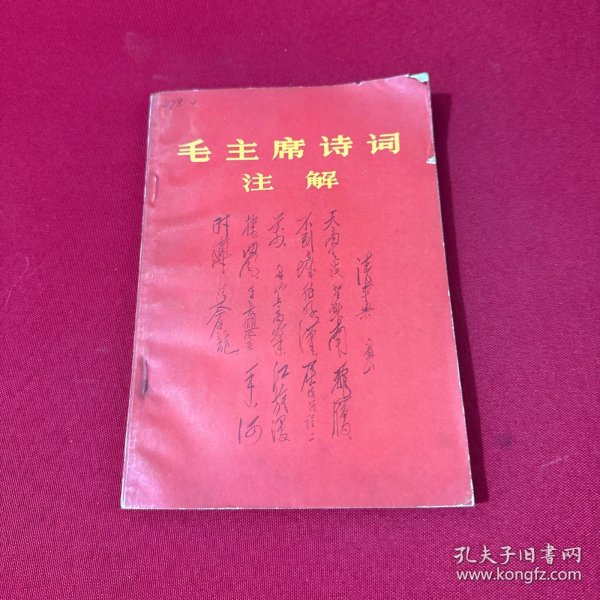 毛主席诗词
注解
清平樂 六盘山
天高云淡望断南飛雁。
不到長城非好漢屈指行程二
萬 六盘山上高峰 红旗漫
捲西風今日長缨在手 何
时縛住蒼龍
孔夫子旧书网
www.kongfz.com